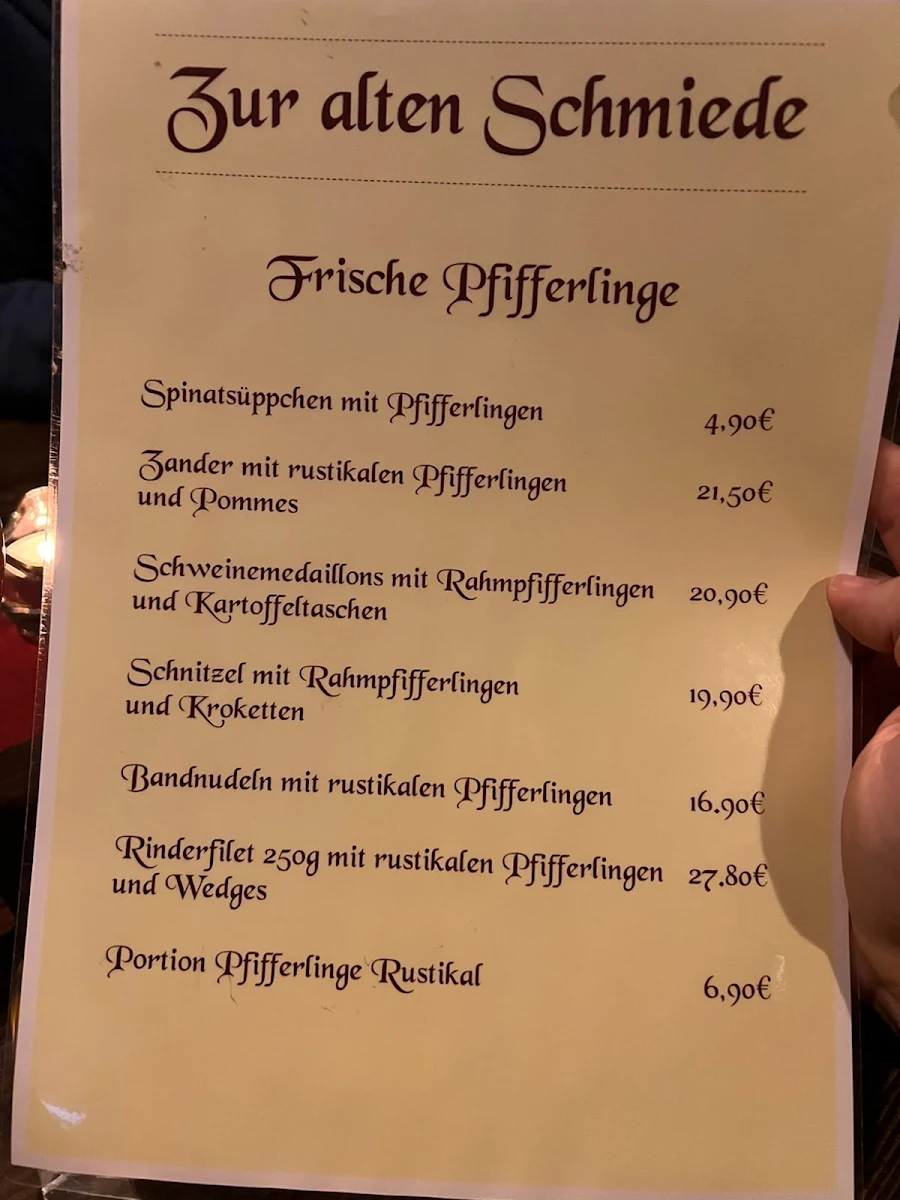 Zur alten Schmiede
Frische Pfifferlinge
Spinatsüppchen mit Pfifferlingen 4,90€
Zander mit rustikalen Pfifferlingen
und Pommes 21,50€
Schweinemedaillons mit Rahmpfifferlingen 20,90€
und Kartoffeltaschen
Schnitzel mit Rahmpfifferlingen
und Kroketten 19,90€
Bandnudeln mit rustikalen Pfifferlingen 16.90€
Rinderfilet 250g mit rustikalen Pfifferlingen 27.80€
und Wedges
Portion Pfifferlinge Rustikal 6,90€